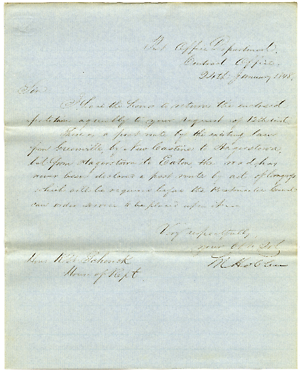 Post Office Department,
Contract Office
24th January 1845.
Sir
I have the honor to return the enclosed
petition agreeably to your request of
There is a post route by the existing law
from Greenville by New Castine to Hagerstown,
but from Hagerstown to Eaton the road has
never been declared a post route by act of Congress
which will be required before the Postmaster General
can order service to be placed upon it.
Very respectfully
your Ob. St.
Hobbie
R. C. Schenck
House of Rept.